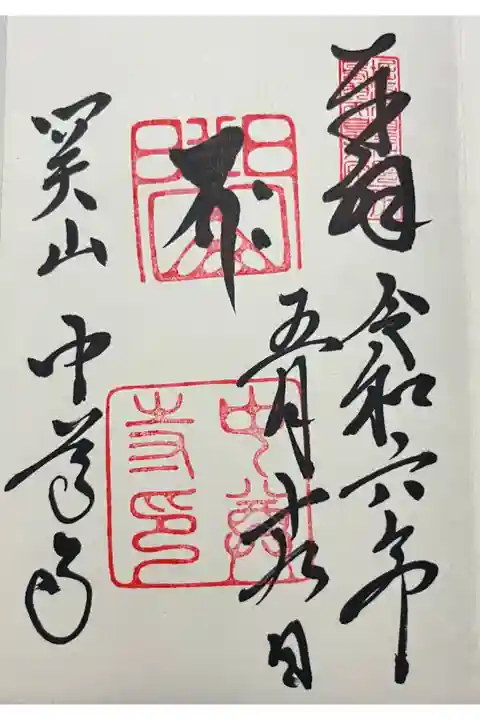 奉拝
令和六年
五月十九日
中尊
寺印
関山 中尊寺